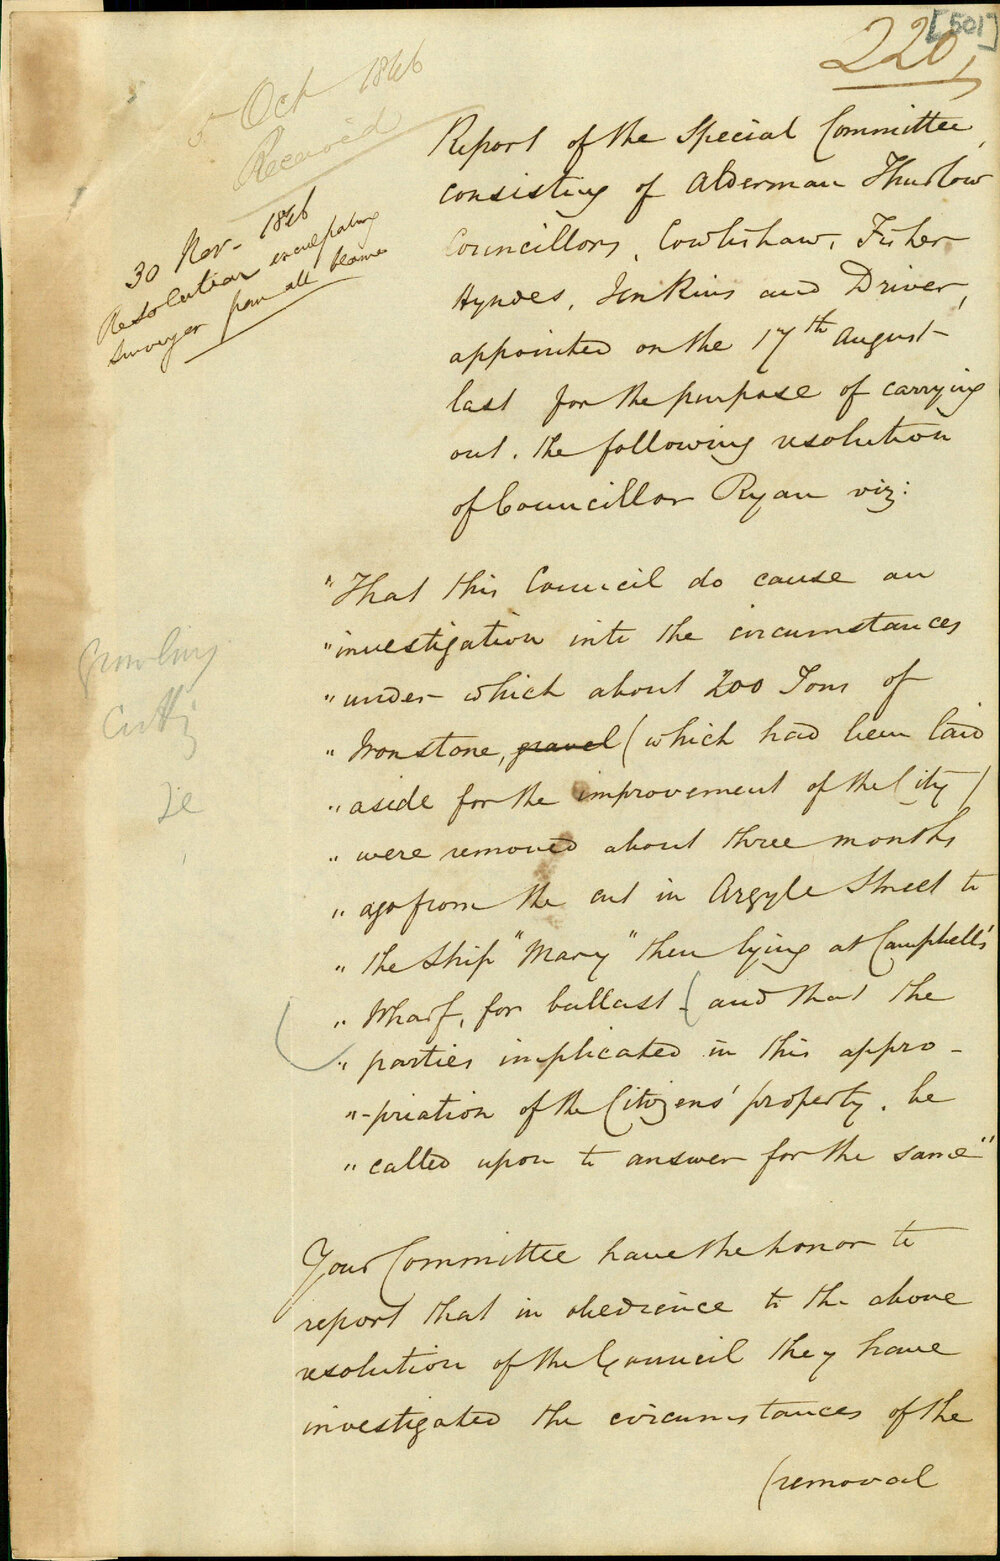 [501]
220
5 Oct 1846
Received
30 Nov. 1846
Resolution exculpating
Surveyor from all blame
Report of the Special Committee,
consisting of Alderman Thurlow
Councillors, Cowlishaw, Fisher
Hyndes, Jenkins and Driver,
appointed on the 17th August
last for the purpose of carrying
out, the following resolution
of Councillor Ryan viz:
"That this Council do cause an
"investigation into the circumstances
"under which about 200 Tons of
"Ironstone, gravel (which had been laid
"aside for the improvement of the City)
"were removed about three months
"ago from the cut in Argyle Street to
"the Ship "Mary" then lying at Campbell's
"Wharf, for ballast (and that the
"parties implicated in this appro-
"-priation of the Citizens' property, be
"called upon to answer for the same"
Your Committee have the honor to
report that in obedience to the above
resolution of the Council they have
investigated the circumstances of the
(removal